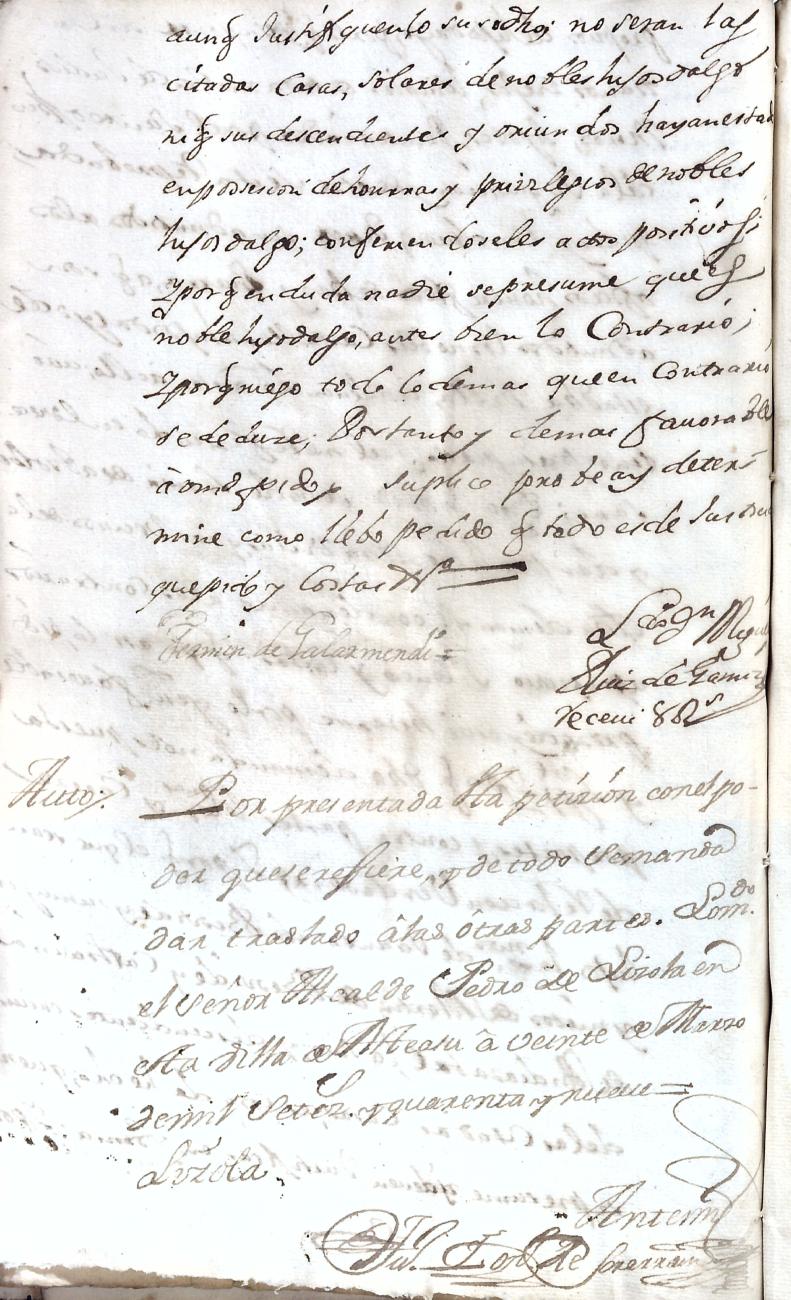 aunq̃ Justifiquen lo susodho; no seran las
citadas Casas, solares de nobles hijosdalgo
niq̃ sus descendientes y oriundos hayan estado
en possesion de honrras y privilegios de nobles
hijosdalgo; confiriendoseles actos positivos;
Y porq̃ en duda nadie se presume que es
noble hijodalgo, antes bien lo Contrario;
Y porq̃ niego todo lo demas que en Contrario
se deduze; Por tanto y demas favorable
à Vmd pido y suplico probea y deter-
mine como llebo pedido q̃ todo es de Justicia
que pido y Costas Vª
Fermin de Galarmendi=
Liz.do Dn Miguel
Ruiz de Gamiz
receui 8 Rs
Auto,,
Por presentada Sta petizion con el po-
der que se refiere, y de todo Se manda
dar traslado â las ôtras partes. Lo m.do
el Señor Alcalde Pedro de Loizola en
esta Villa de Ateaun â veinte de Marzo
de mil Setez.s y quarenta y nueue=
Loizola
Antemi